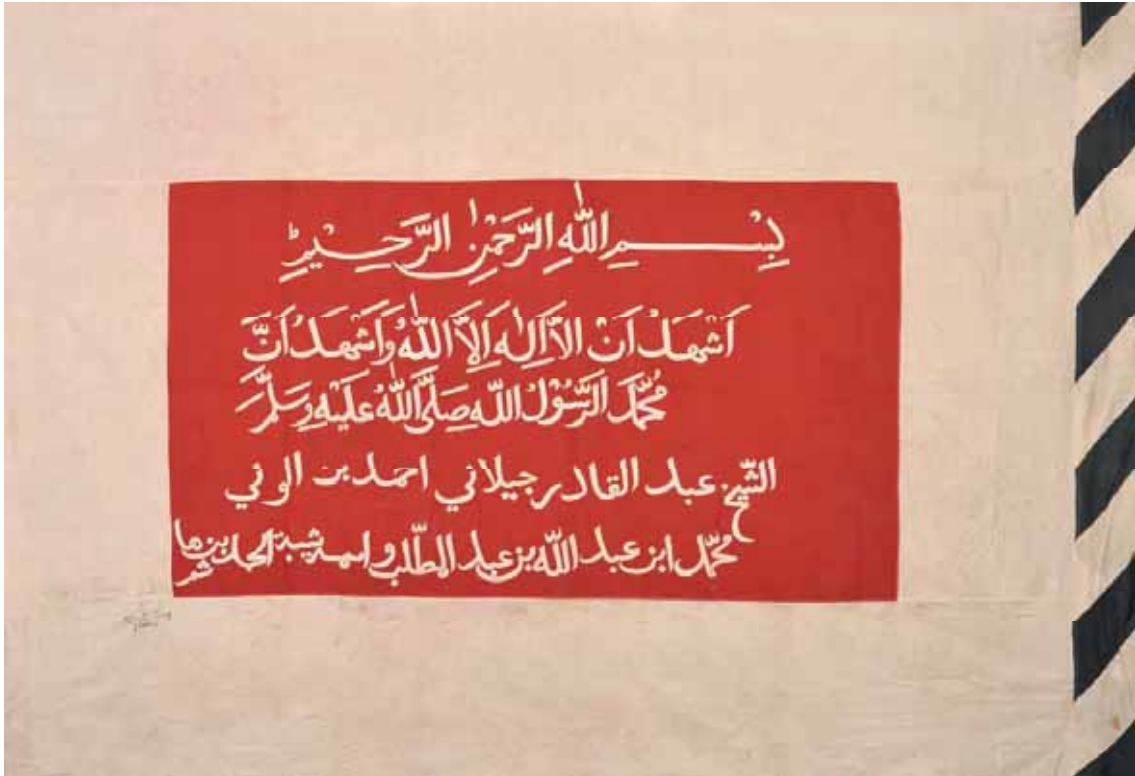 بِسْمِ اللّٰهِ الرَّحْمٰنِ الرَّحِيْمِ
اَشْهَدُ اَنْ الَّا اِلٰهَ اِلَّا اللّٰهُ وَاَشْهَدُ اَنَّ
مُحَمَّد الرَّسُوْلُ اللّٰه صَلَّى اللّٰهُ عَلَيْهِ وَسَلَّمَ
الشّيخ عبد القادر جيلاني احمد بن الوني
محمّد ابن عبد اللّه بن عبد المطّلب واسمه شيبة الحمد بن هاشم